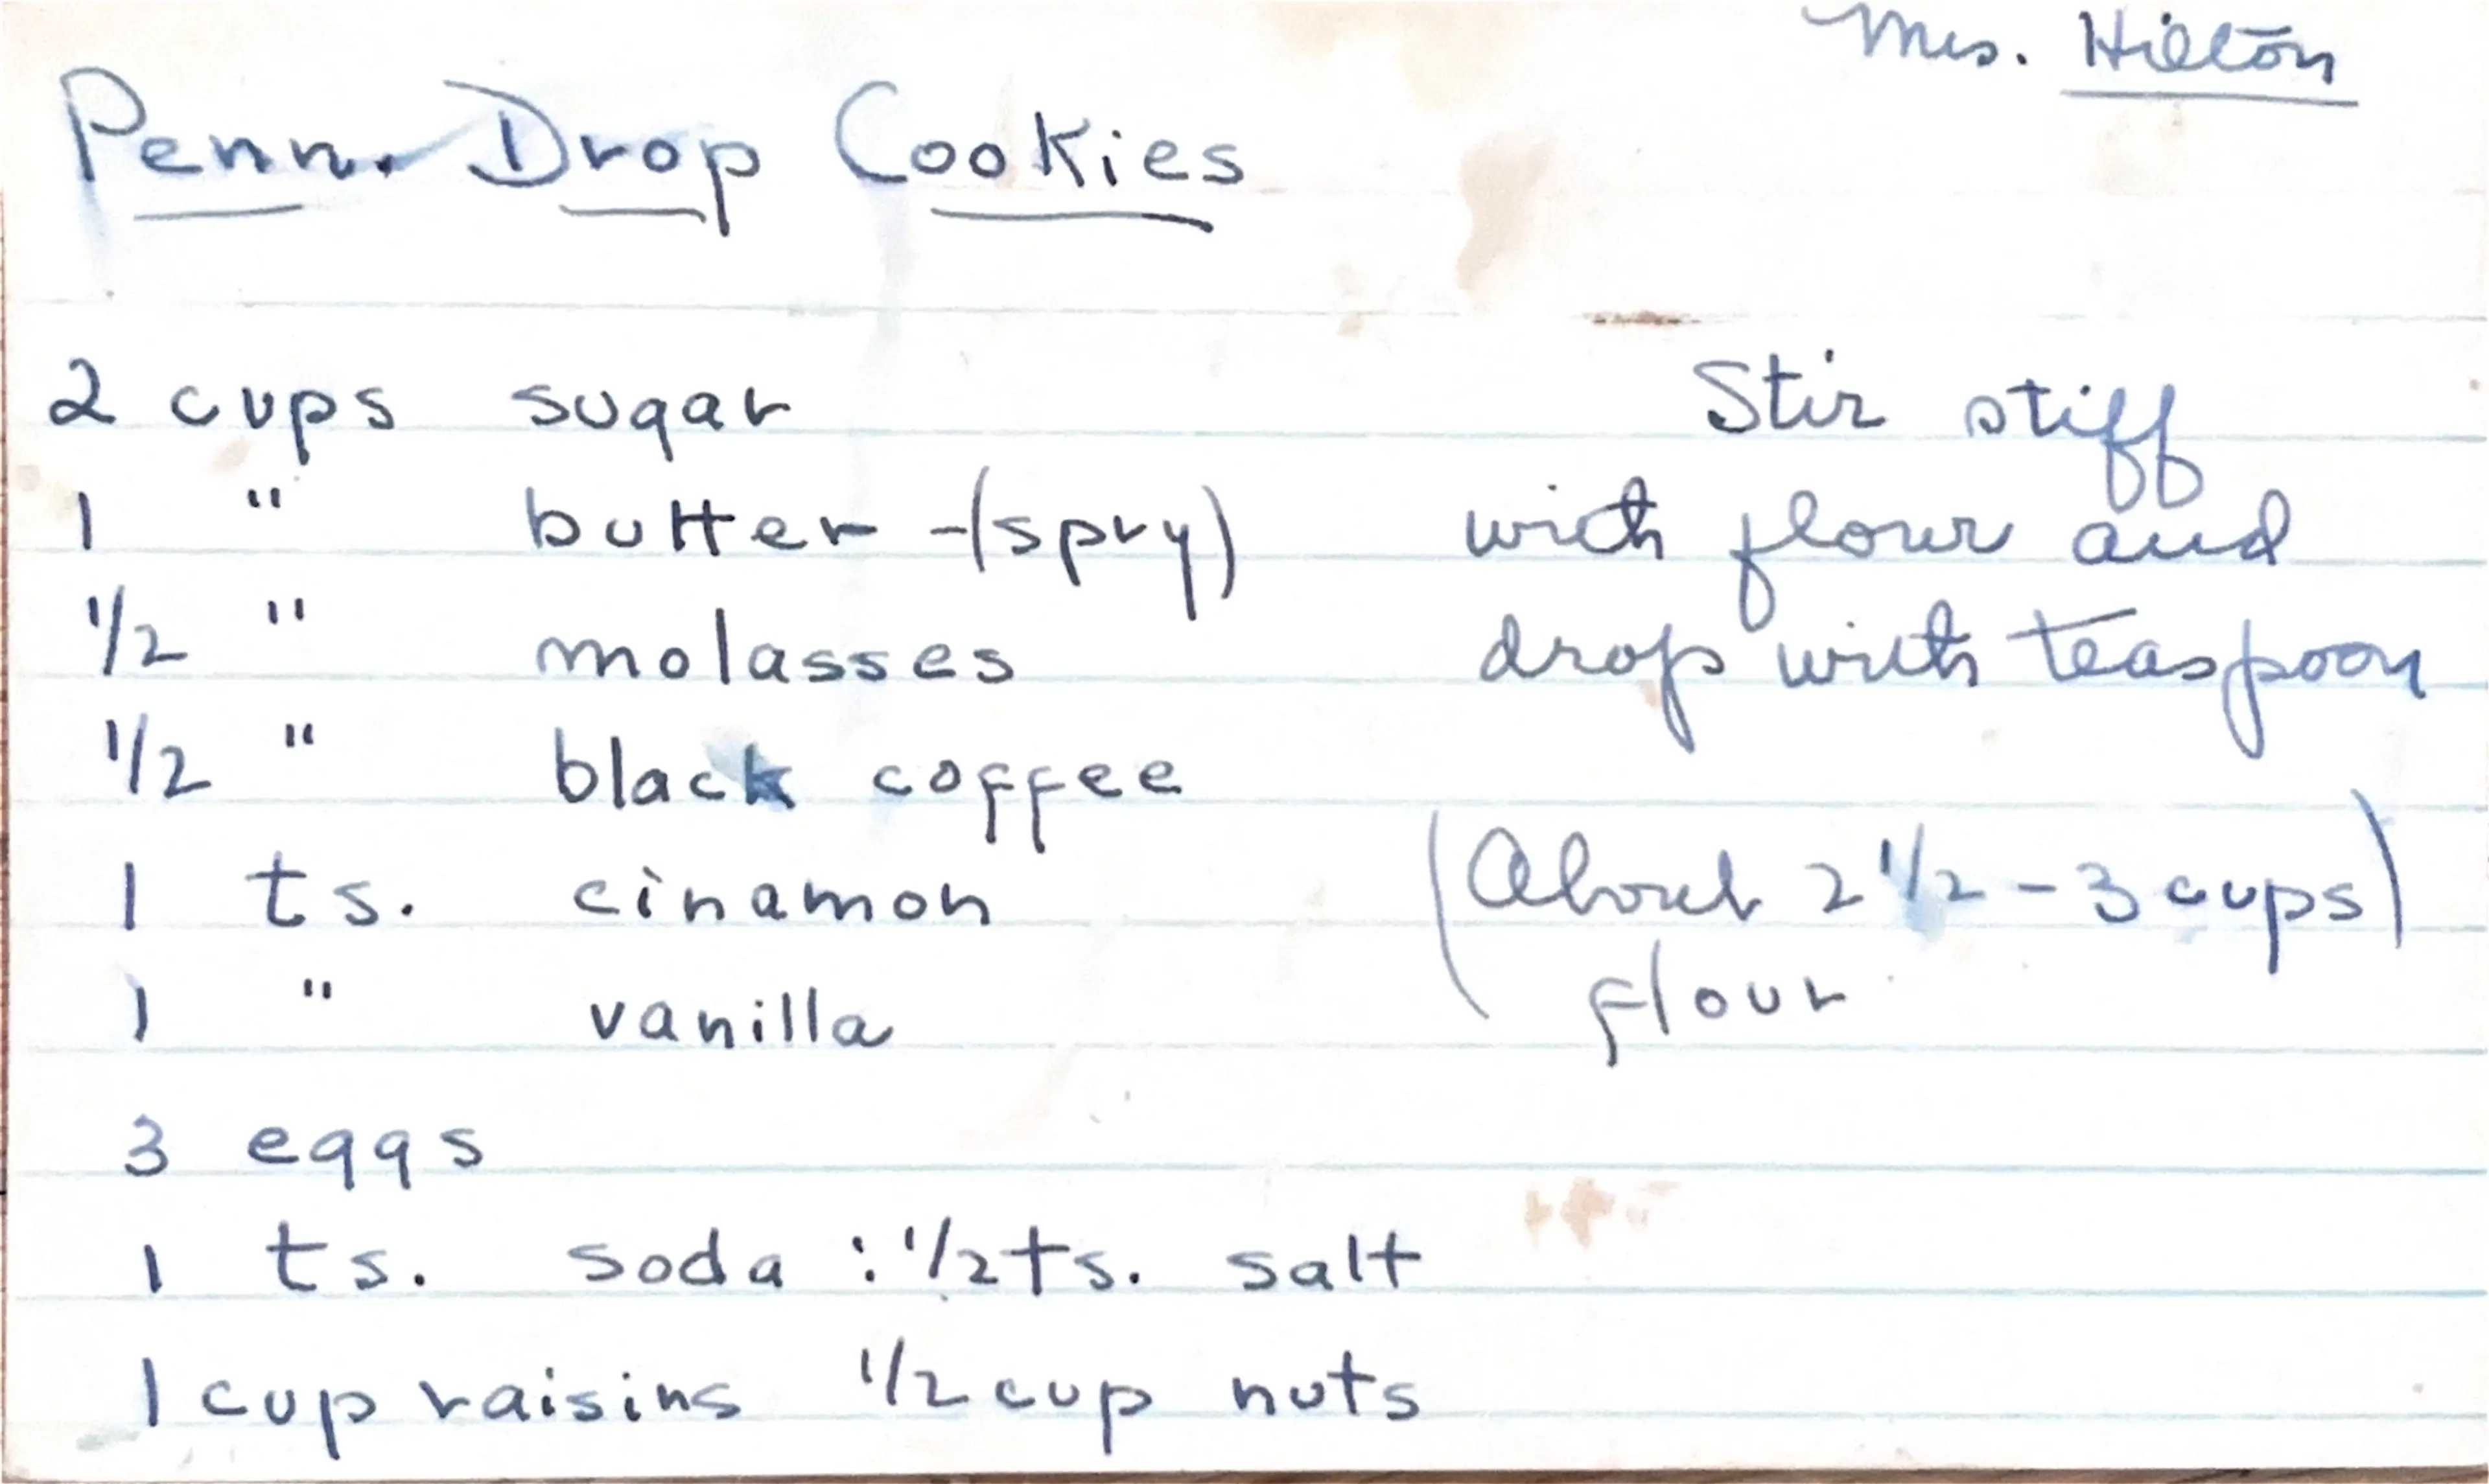 Mrs. Hilton
Penn. Drop Cookies
2 cups sugar
1 " butter -(spry)
1/2 " molasses
1/2 " black coffee
1 ts. cinamon
1 " vanilla
3 eggs
1 ts. soda : 1/2 ts. salt
1 cup raisins 1/2 cup nuts
Stir stiff
with flour and
drop with teaspoon
(About 2 1/2 - 3 cups)
flour